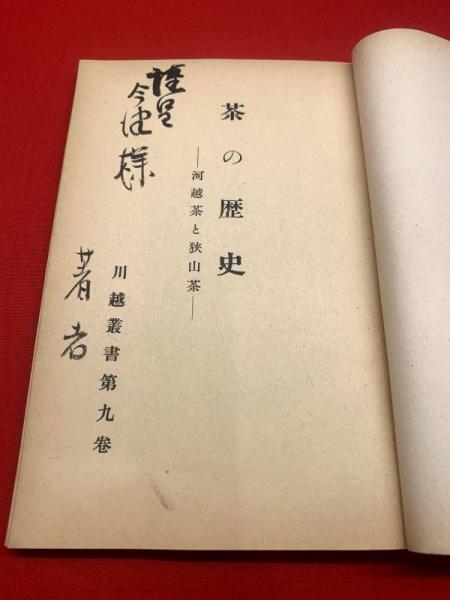 茶の歴史
―河越茶と狭山茶―
川越叢書第九巻
謹呈
今津様
著者